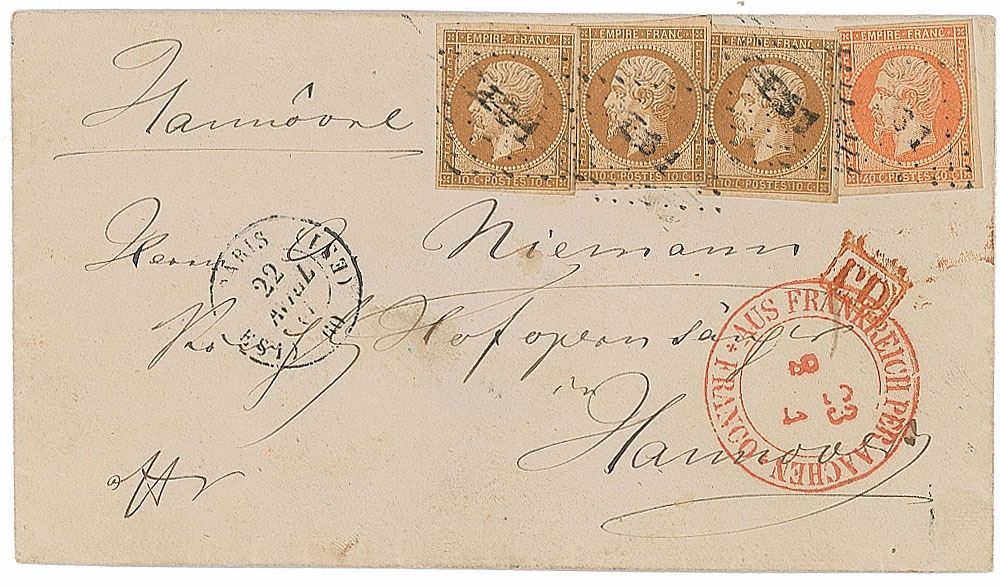 EMPIRE FRANC EMPIRE FRANC EMPIRE FRANC EMPIRE FRANC
10 C POSTES 10 C 10 C POSTES 10 C 10 C POSTES 10 C 40 C POSTES 40 C
Hannôvre
Herrn Niemann
PARIS
22
AVRIL
60
P.D.
Hofopernsänger
in
Hannover
AUS FRANKREICH PER AACHEN
FRANCO